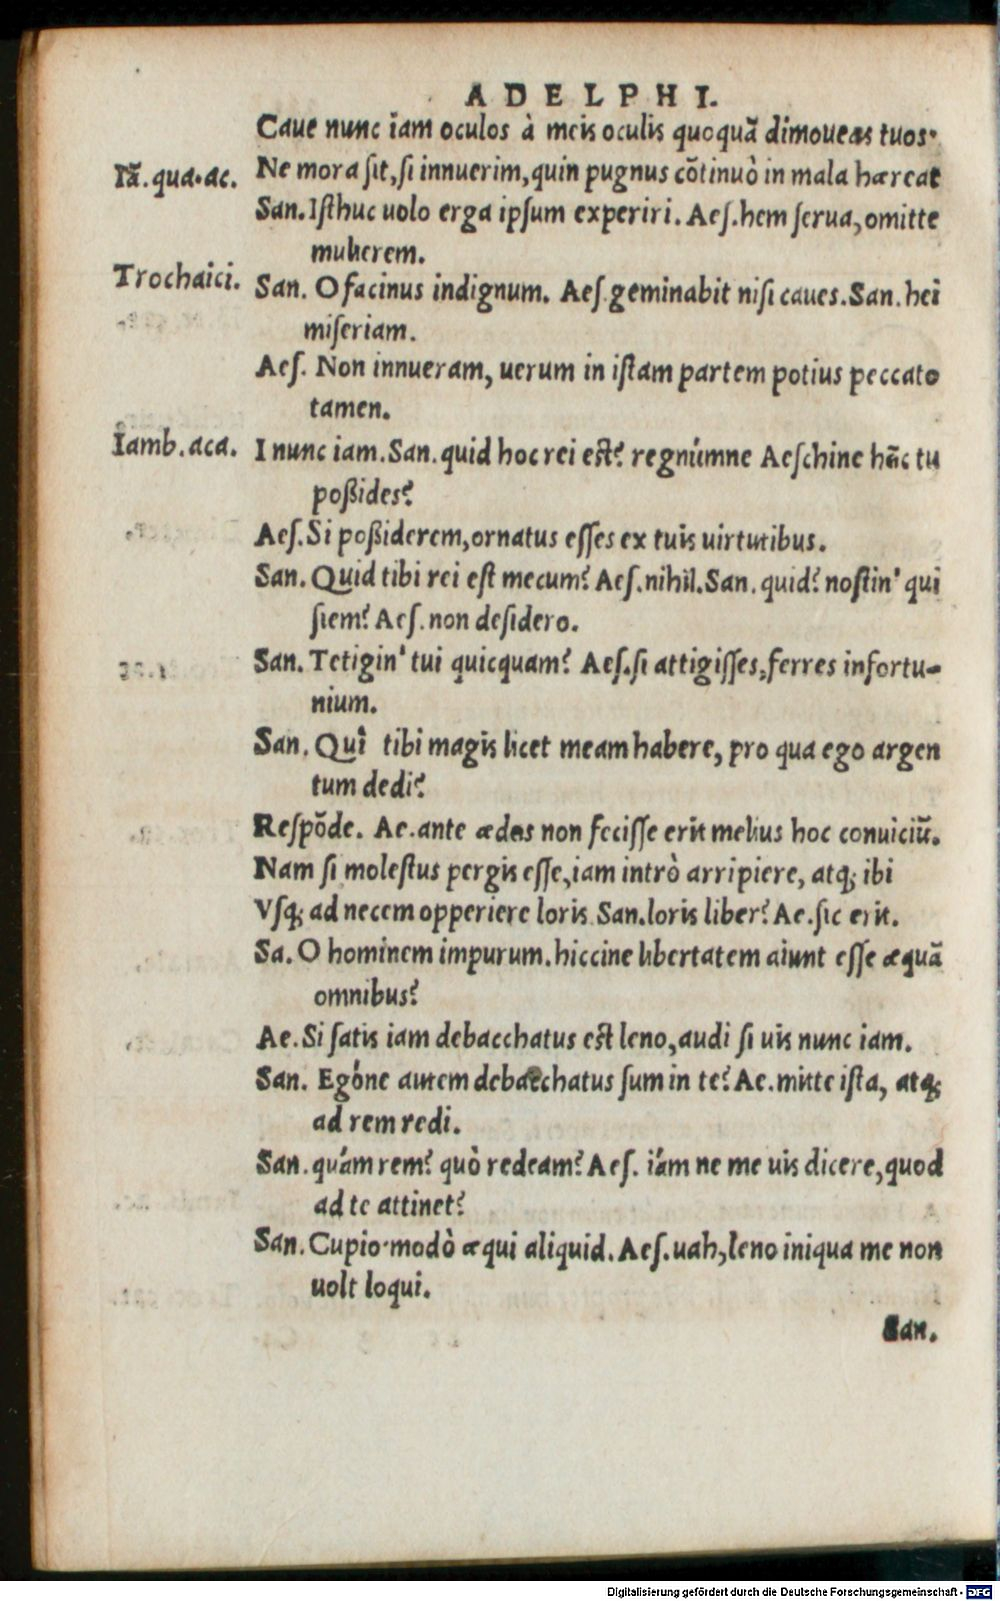 ADELPHI.
Caue nunc iam oculos à meis oculis quoquã dimoueas tuos.
Iã. qua. ac. Ne mora ſit, ſi innuerim, quin pugnus cõtinuò in mala hæreat
San. Iſthuc uolo erga ipſum experiri. Aeſ. hem ſerua, omitte
mulierem.
Trochaici. San. O facinus indignum. Aeſ. geminabit niſi caues. San. hei
miſeriam.
Aeſ. Non innueram, uerum in iſtam partem potius peccato
tamen.
Iamb. aca. I nunc iam. San. quid hoc rei eſt? regnúmne Aeſchine hĩc tu
poßides?
Aeſ. Si poßiderem, ornatus eſſes ex tuis uirtutibus.
San. Quid tibi rei eſt mecum? Aeſ. nihil. San. quid? noſtin' qui
ſiem? Aeſ. non deſidero.
San. Tetigin' tui quicquam? Aeſ. ſi attigiſſes, ferres infortu-
nium.
San. Quî tibi magis licet meam habere, pro qua ego argen
tum dedi?
Reſpõde. Ae. ante ædes non feciſſe erit melius hoc conuiciũ.
Nam ſi moleſtus pergis eſſe, iam intrò arripiere, atq; ibi
Vſq; ad necem opperiere loris. San. loris liber? Ae. ſic erit.
Sa. O hominem impurum. hiccine libertatem aiunt eſſe æquã
omnibus?
Ae. Si ſatis iam debacchatus eſt leno, audi ſi uis nunc iam.
San. Egóne autem debacchatus ſum in te? Ae. mitte iſta, atq;
ad rem redi.
San. quám rem? quò redeam? Aeſ. iám ne me uis dicere, quod
ad te attinet?
San. Cupio modò æqui aliquid. Aeſ. uah, leno iniqua me non
uolt loqui.
San.
Digitalisierung gefördert durch die Deutsche Forschungsgemeinschaft - DFG